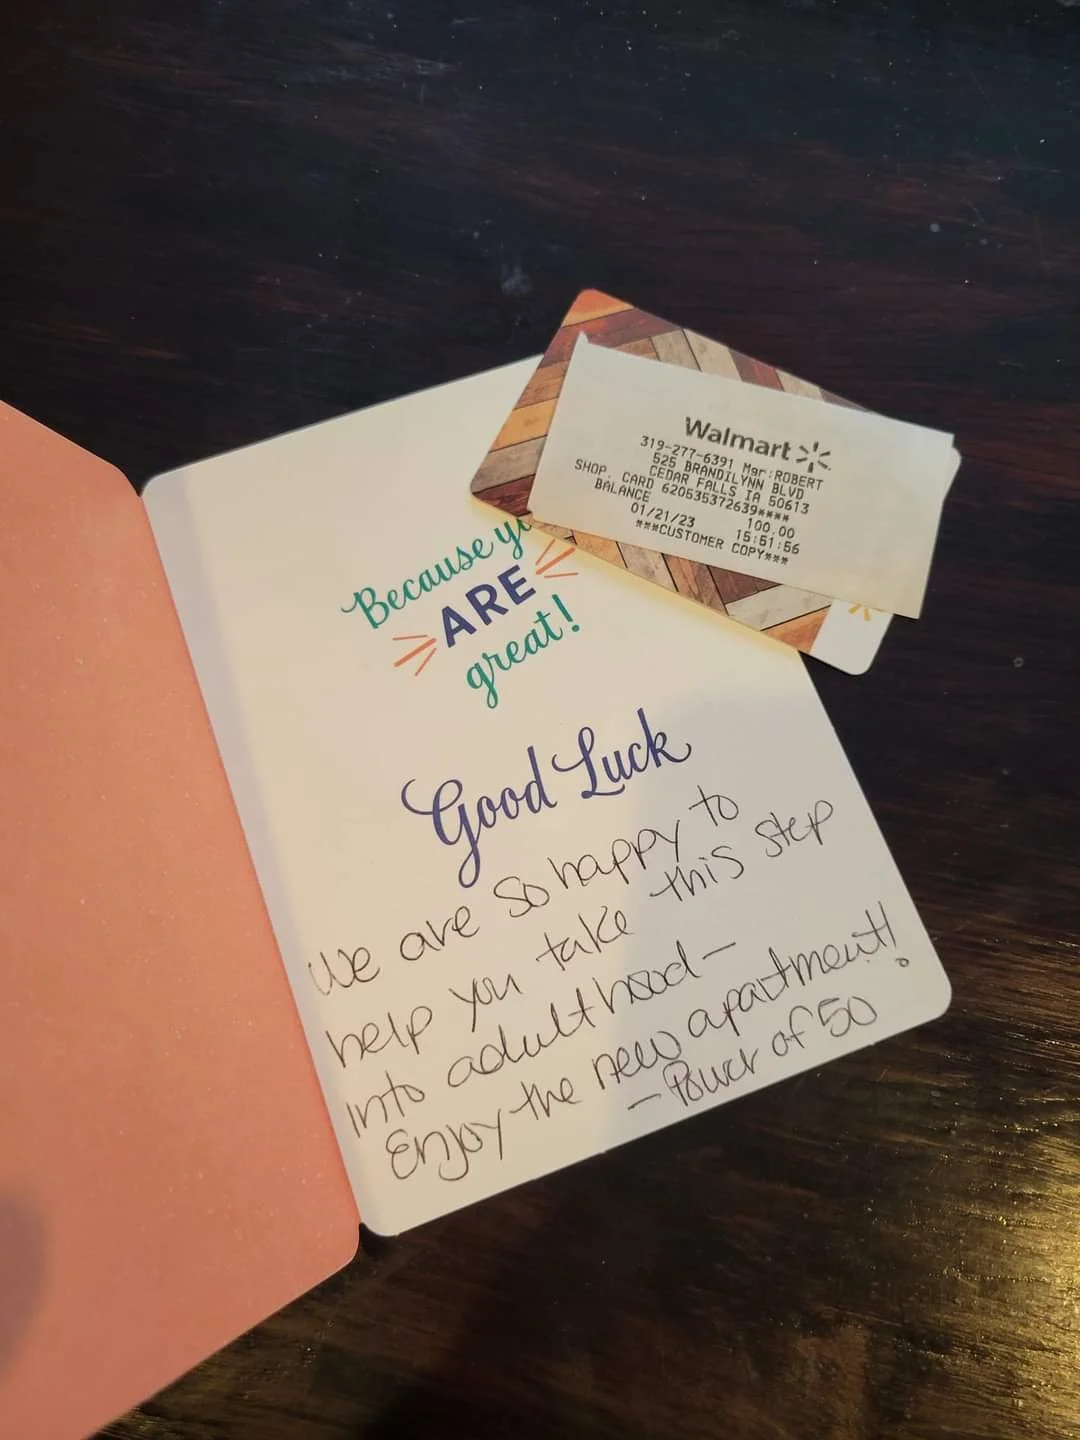 Walmart
319-277-6391 Mgr:ROBERT
525 BRANDILYNN BLVD
CEDAR FALLS IA 50613
SHOP. CARD 620535372639****
BALANCE 100.00
01/21/23 15:51:56
***CUSTOMER COPY***
Because yo
ARE
great!
Good Luck
We are so happy to
help you take this step
into adulthood—
Enjoy the new apartment!
— Power of 50